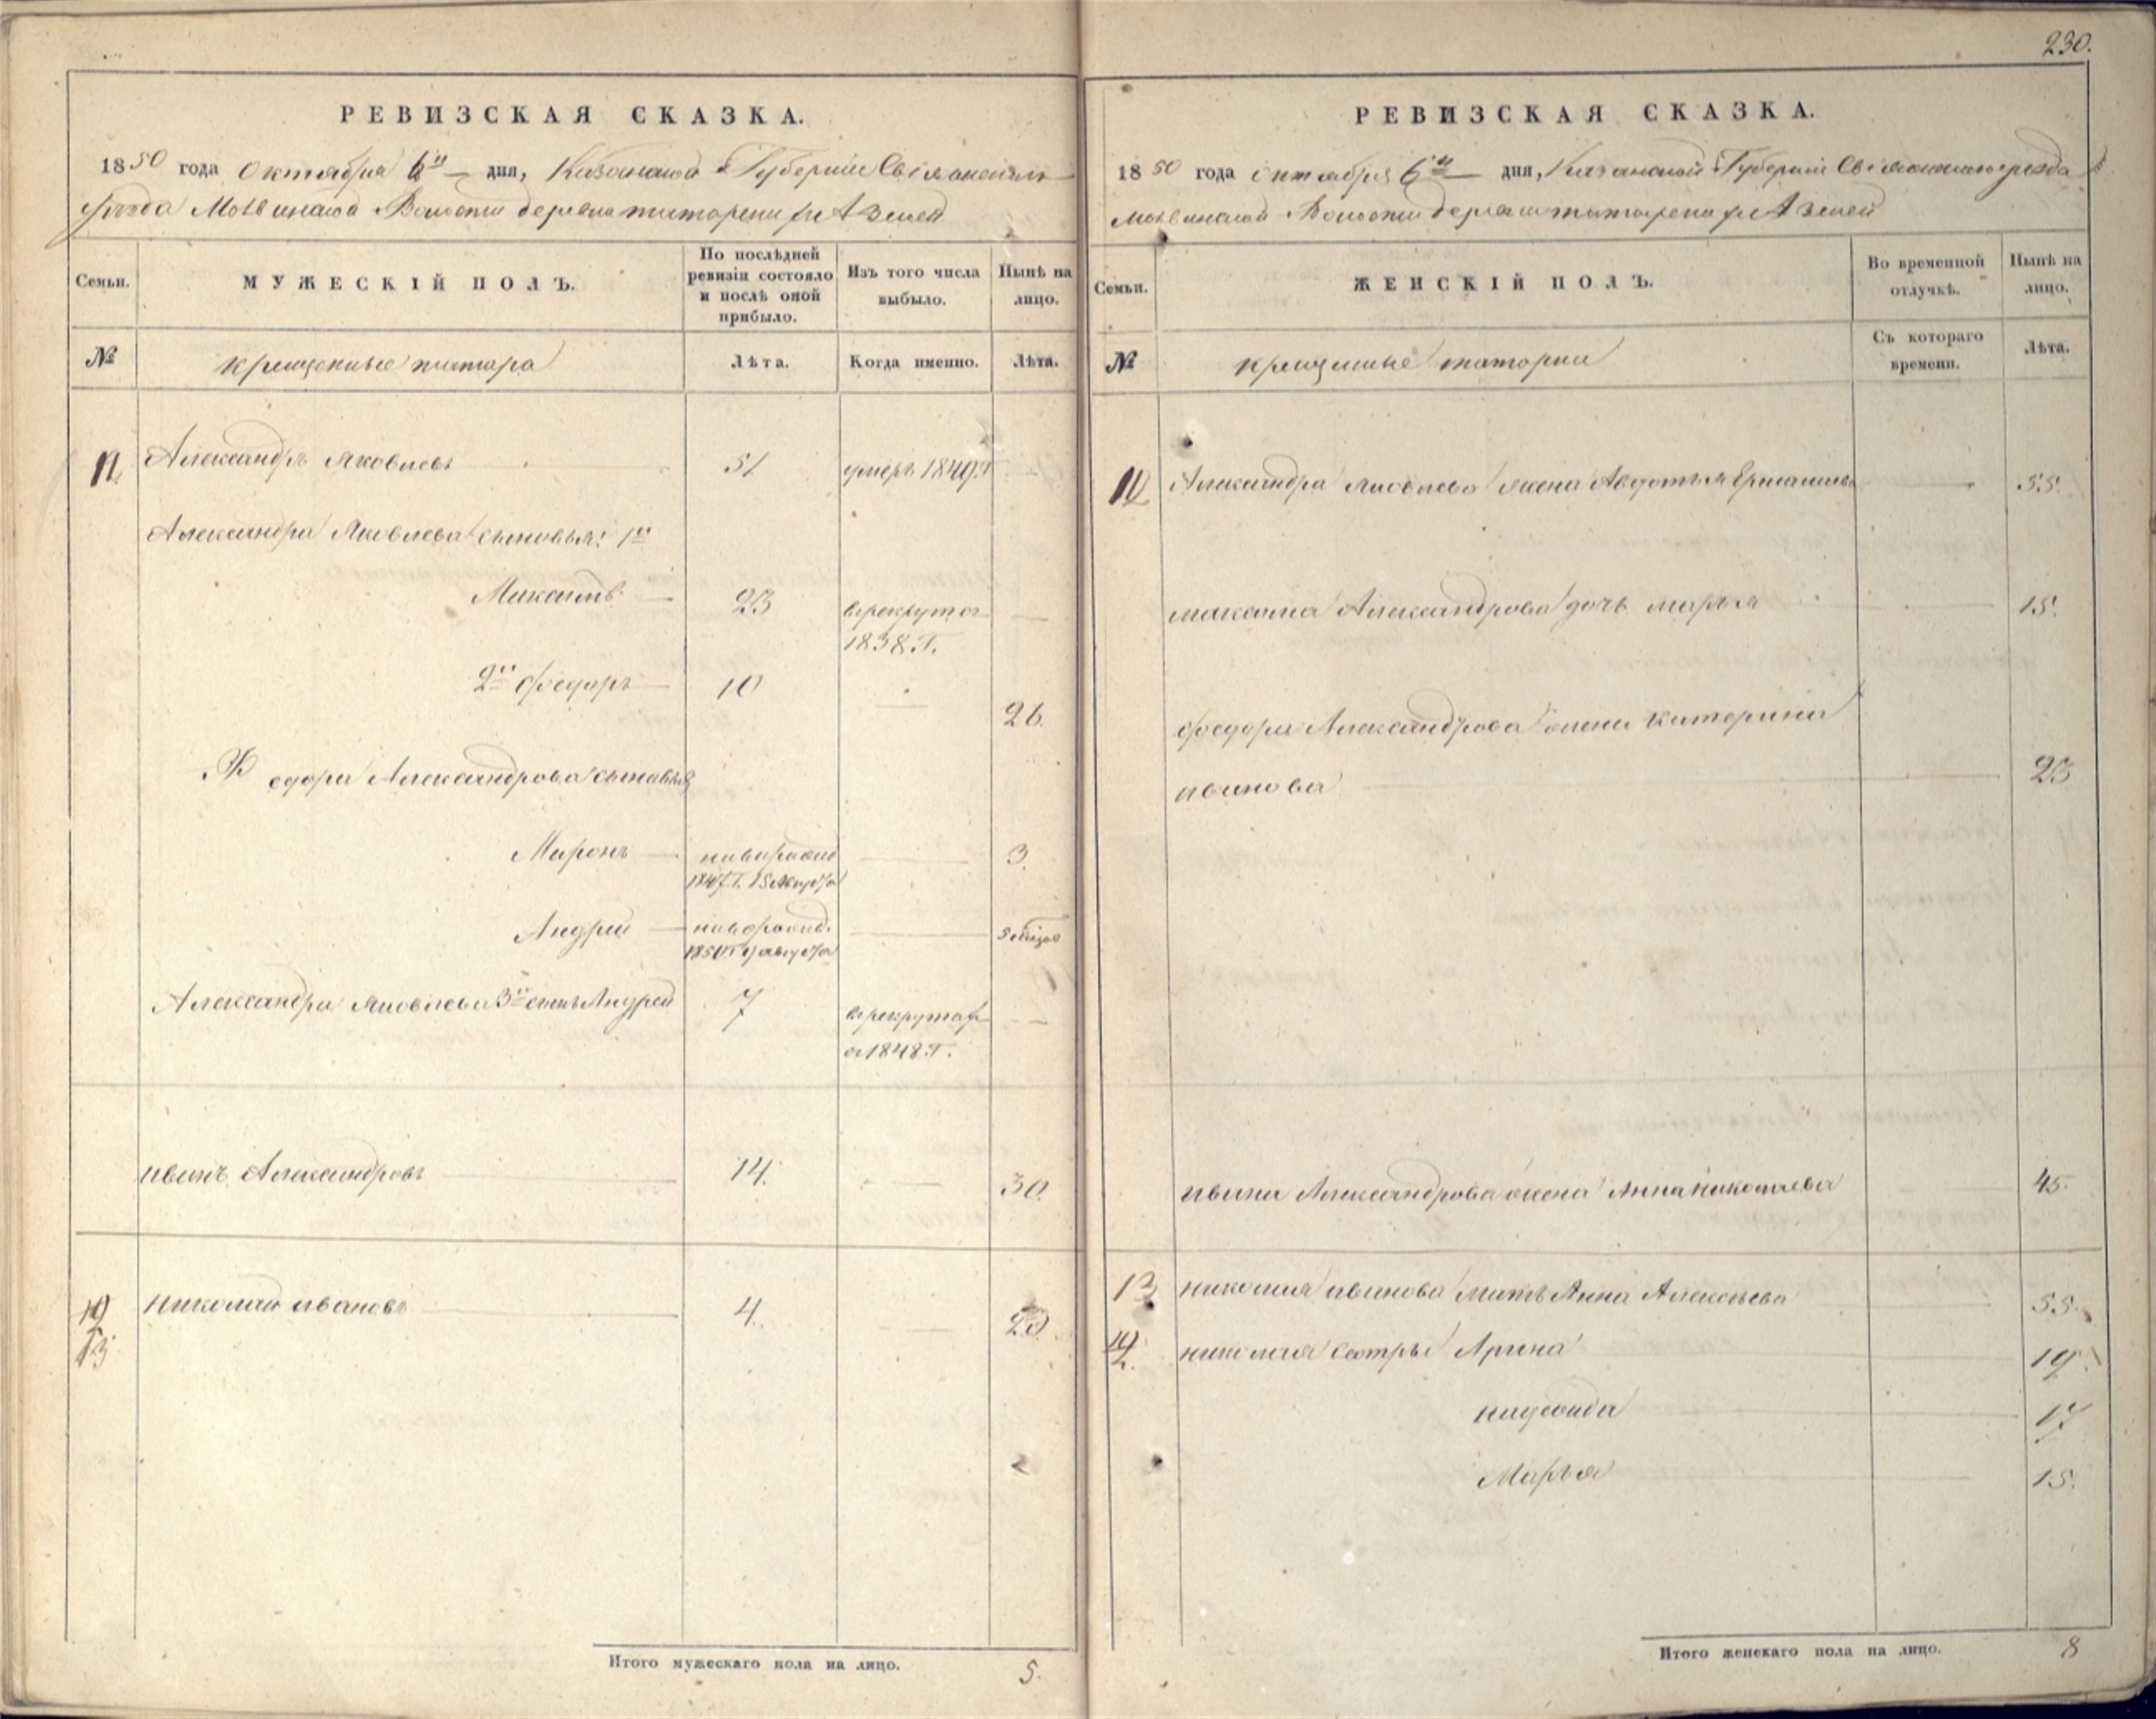 230.
РЕВИЗСКАЯ СКАЗКА.
1850 года Октября 6го дня, Казанской Губерніи Свіяжскаго
уѣзда Волости деревни
Семьи. МУЖЕСКІЙ ПОЛЪ. По послѣдней ревизіи состояло и послѣ оной прибыло. Изъ того числа выбыло. Нынѣ на лицо.
№ крещеные татара Лѣта. Когда именно. Лѣта.
11 Александръ Яковлевъ 51 умеръ 1840.г
Александра Яковлева сыновья: 1й
Максимъ 23 в рекруты
1838.Г.
2й Федаръ 10 26.
Федора Александрова сыновья
Миронъ новорожд 3.
1847.Г. 15 Августа
Андрей новорожд.
1850 августа
Александра Яковлева 3й сынъ Андрей 7 в рекрутах
1848.Г.
иванъ Александровъ 14. 30.
12
13 николай ивановъ 4. 20.
Итого мужескаго пола на лицо. 5.
РЕВИЗСКАЯ СКАЗКА.
1850 года октября 6го дня, Казанской Губерніи Свіяжскаго уѣзда
Волости деревни
Семьи. ЖЕНСКІЙ ПОЛЪ. Во временной отлучкѣ. Нынѣ на лицо.
№ крещеные татарки Съ котораго времени. Лѣта.
11 Александра Яковлева жена Авдотья 55.
максима Александрова дочь марья 15.
федора Александрова жена катерина
иванова 23
ивана Александрова жена Анна николаева 45.
13 николая иванова мать Анна Алексеева 55.
12. николая сестры Арина 19.
надежда 17
Марья 15.
Итого женскаго пола на лицо. 8